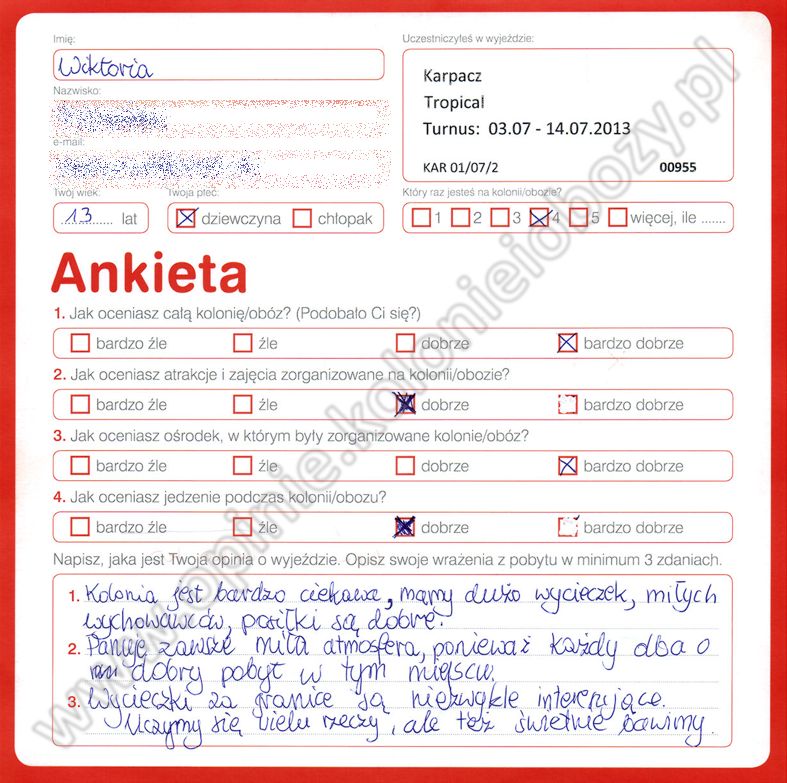 Imię:
Wiktoria
Nazwisko:
e-mail:
Twój wiek:
13 lat
Twoja płeć:
dziewczyna chłopak
Uczestniczyłeś w wyjeździe:
Karpacz
Tropical
Turnus: 03.07 - 14.07.2013
KAR 01/07/2 00955
Który raz jesteś na kolonii/obozie?
1 2 3 4 5 więcej, ile .......
Ankieta
1. Jak oceniasz całą kolonię/obóz? (Podobało Ci się?)
bardzo źle źle dobrze bardzo dobrze
2. Jak oceniasz atrakcje i zajęcia zorganizowane na kolonii/obozie?
bardzo źle źle dobrze bardzo dobrze
3. Jak oceniasz ośrodek, w którym były zorganizowane kolonie/obóz?
bardzo źle źle dobrze bardzo dobrze
4. Jak oceniasz jedzenie podczas kolonii/obozu?
bardzo źle źle dobrze bardzo dobrze
Napisz, jaka jest Twoja opinia o wyjeździe. Opisz swoje wrażenia z pobytu w minimum 3 zdaniach.
1. Kolonia jest bardzo ciekawa, mamy dużo wycieczek, miłych
wychowawców, posiłki są dobre.
2. Panuje zawsze miła atmosfera, ponieważ każdy dba o
dobry pobyt w tym miejscu.
3. Wycieczki za granice są niezwykle interesujące.
Uczymy się wielu rzeczy, ale też świetnie bawimy.
www.opinie.kolonieiobozy.pl